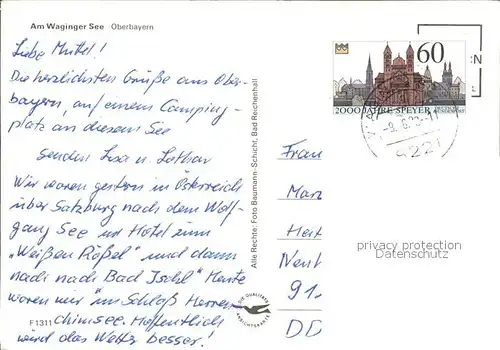 Am Waginger See Oberbayern
Liebe Muttel!
Die herzlichsten Grüße aus Ober-
bayern, auf einem Camping-
platz an diesem See
senden Lisa u. Lothar
Wir waren gestern in Österreich
über Salzburg nach dem Wolf-
gang See im Hotel zum
"Weißen Rößel" und dann
noch nach Bad Ischl" Heute
waren wir im Schloß Herren
chimsee. Hoffentlich
wird das Wetter besser!
F1311
Alle Rechte: Foto Baumann-Schicht, Bad Reichenhall
DIE QUALITÄTS
ANSICHTSKARTE
60
2000 JAHRE SPEYER
DEUTSCHE BUNDESPOST
8221
Frau
privacy protection
Datenschutz
91
DD